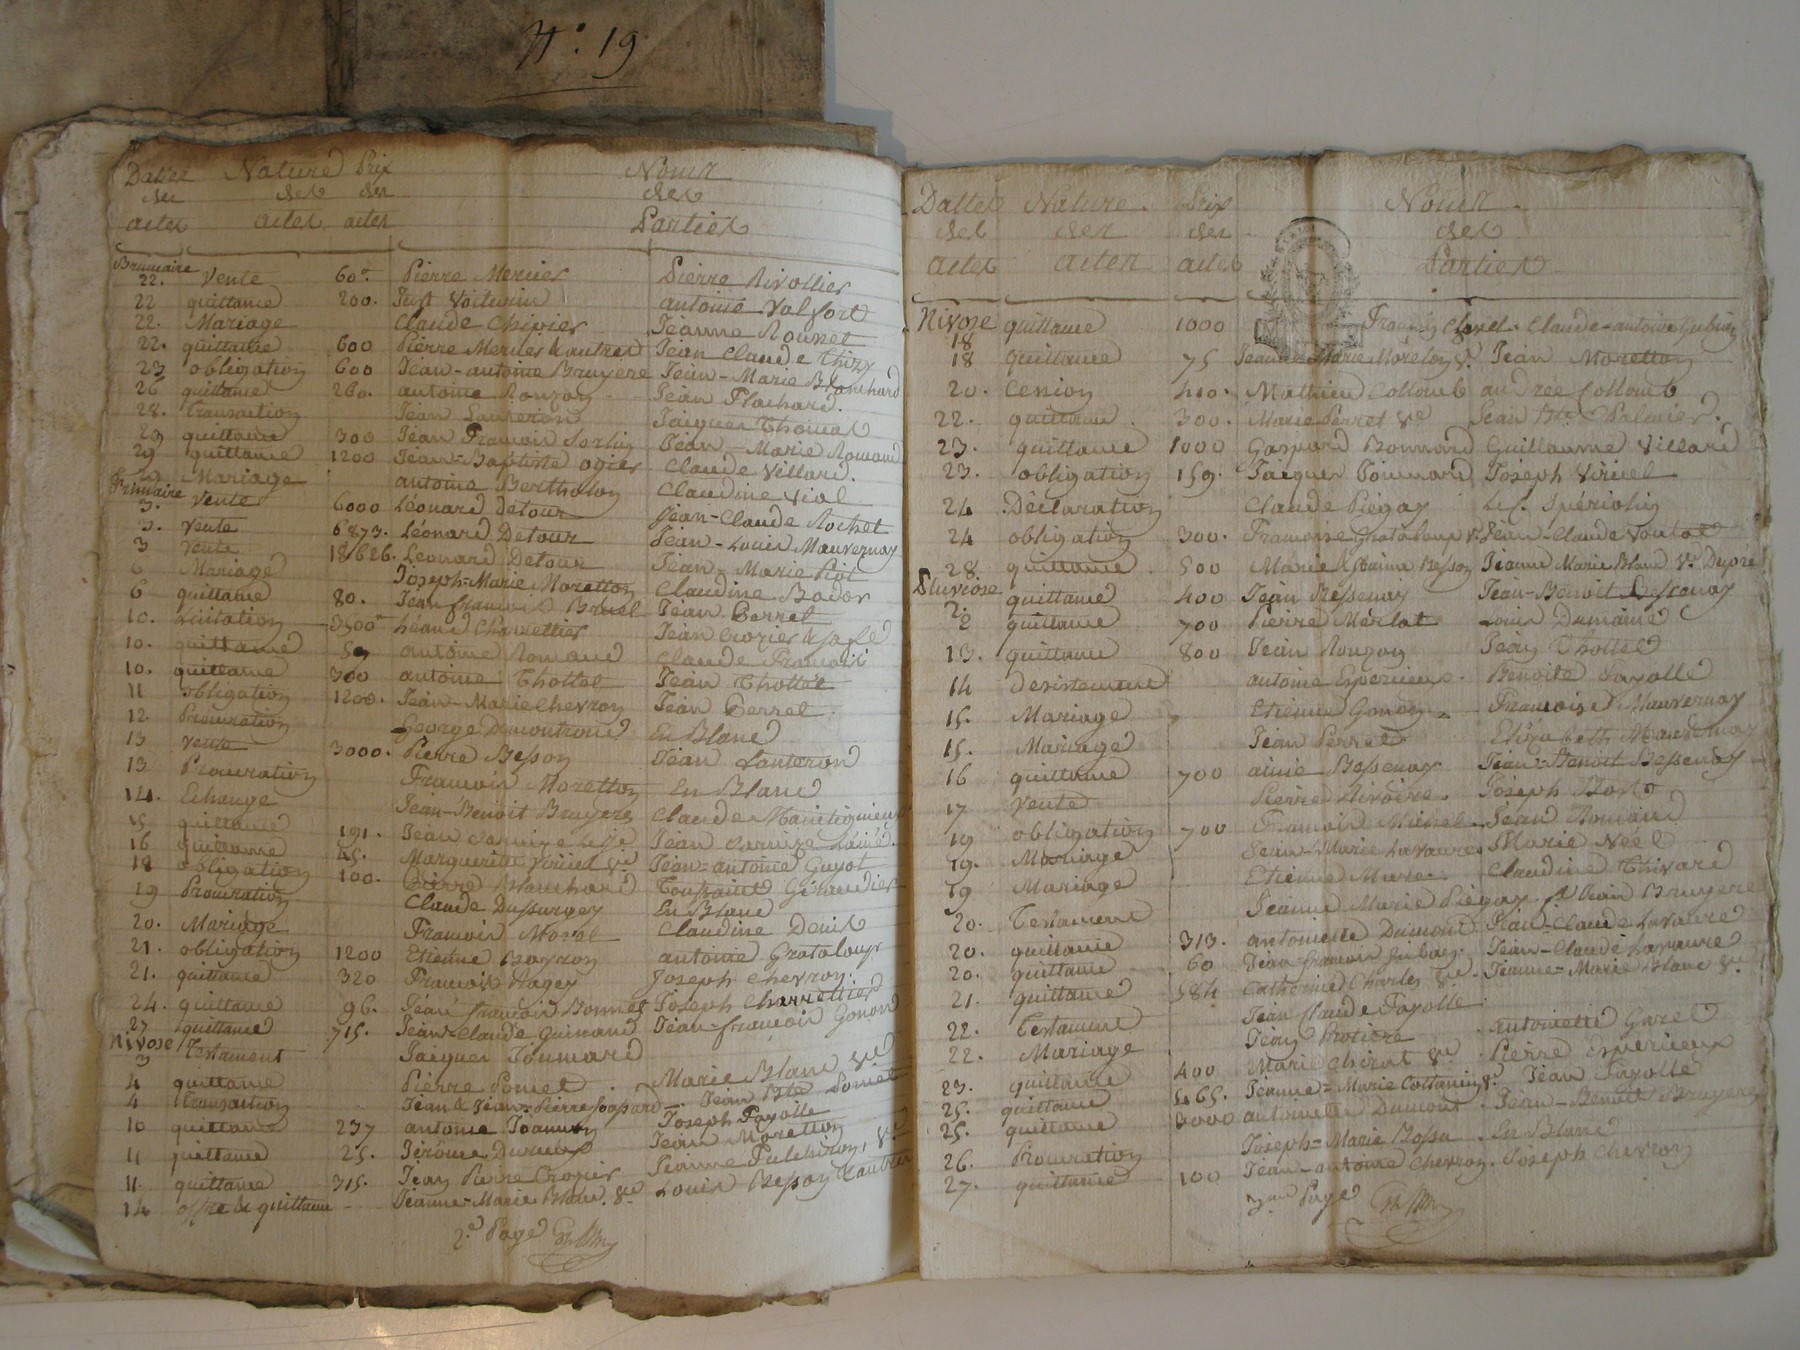 N.° 19
Dattes Nature Prix Noms
des des des des
actes actes actes Parties
Brumaire
22. Vente 60# Pierre Mercier Pierre Rivollier
22 quittance 200. Just Voiturin antoine Valfort
22. Mariage Claude Chipier Jeanne Rounet
22. quittance 600 Pierre Mercier & autres Jean Claude Thizy
23 obligation 600 Jean-antoine Bruyere Jean-Marie Blanchard
26 quittance 260. antoine Ronzon Jean Flachard.
28. Transaction Jean Lanteron Jacques Thomas
29 quittance 300 Jean François Jean-Marie Romand
29 quittance 1200 Jean-Baptiste ogier Claude Villard.
Mariage antoine Bertholon Claudine Vial
Frimaire
3. Vente 6000 Léonard Detour Jean-Claude Rochet
3. Vente 6873. Léonard Detour Jean-Louis Mauvernay
3 Vente 18626. Léonard Detour Jean-Marie Piot
6 Mariage Joseph-Marie Moretton Claudine Bador
6 quittance 80. Jean françois Bruel Jean Perret
10. Licitation 3500# Charrettier Jean Crozier &
10. quittance 59 antoine Romand Claude François
10. quittance 300 antoine Thollet Jean Thollet
11 obligation 1200. Jean-Marie Chevron Jean Perret.
12 Procuration George Demontrond En Blanc
13 Vente 3000. Pierre Besson Jean Lanteron
13 Procuration François Moretton En Blanc
14. Echange Jean-Benoit Bruyere Claude
15 quittance 191. Jean Jean
16 quittance 45. Marguerite Viricel Ve Jean-antoine Guyot
18 obligation 100. Pierre Blanchard Toussaint Giraudier
19 Procuration Claude Dussurgey En Blanc
20. Mariage François Morat Claudine Denis
21. obligation 1200 Etienne antoine Grataloup
21. quittance 320 François Ragey Joseph Chevron.
24. quittance 96. Jean françois Bonnet Joseph Charrettier
27 quittance 715. Jean-Claude Guinand Jean-françois Gonon
Nivose
3 Testament Jacques Joumard
4 quittance Pierre Poncet Marie Blanc Ve
4 Transaction Jean & Jean-Pierre Jean Bte Poncet
10 quittance 237 antoine Joannon Joseph Fayolle
11 quittance 25. Jérôme Jean Moretton
11. quittance 315. Jean Pierre Crozier Jeanne Pulchiron, Ve
14 offre & quittance Jeanne-Marie Blanc Ve Louis Besson & autres
2.e Page
Dattes Nature Prix Noms
des des des des
actes actes actes Parties
Nivose
18 quittance 1000 François Clavel. Claude-antoine
18 quittance 75 Jeanne Marie Moreton Ve Jean Moretton
20. Cession 410. Mathieu Collomb andrée Collomb
22. quittance 300. Marie Perret Ve Jean Bte Palmier.
23. quittance 1000 Gaspard Bonnard Guillaume Villard
23. obligation 159. Jacques Joumard Joseph Viricel
24 Déclaration Claude Piégay
24 obligation 300. Françoise Grataloup Ve Jean-Claude
28 quittance 500 Marie & Jeanne Besson Jeanne Marie Blanc Ve
Pluviose
2. quittance 400 Jean Bessenay Jean-Benoit Bessenay
2 quittance 700 Pierre Merlat Louis Dumaine
13. quittance 800 Jean Ronzon Jean Thollet
14 desistement antoine Esperieux. Benoite Fayolle
15. Mariage Etienne Gonon Françoise Mauvernay
15. Mariage Jean Perret Elizabeth Mauvernay
16 quittance 700 aimé Bessenay Jean-Benoit Bessenay
17 Vente Pierre Rivoire. Joseph
19 obligation 700 François Michel Jean Romand
19. Mariage Jean-Marie Lavaure Marie Néel
19 Mariage Etienne Mure. Claudine Thivard
20. Testament Jeanne Marie Piégay fe Jean Bruyere
20. quittance 313. antoinette Dumont Jean-Claude Lavaure
20. quittance 60 Jean françois Jean-Claude Lavaure
21. quittance 584 Catherine Charles Ve Jeanne-Marie Blanc Ve
22. Testament Jean Claude Fayolle
22. Mariage Jean antoinette
23. quittance 400 Marie Chirat Ve Pierre Esperieux
25. quittance 465. Jeanne-Marie Ve Jean Fayolle
25. quittance 3000 antoinette Dumont Jean-Benoit Bruyere
26. Procuration Joseph-Marie Bossu En Blanc
27. quittance 100 Jean-antoine Chevron. Joseph Chevron
3me Page